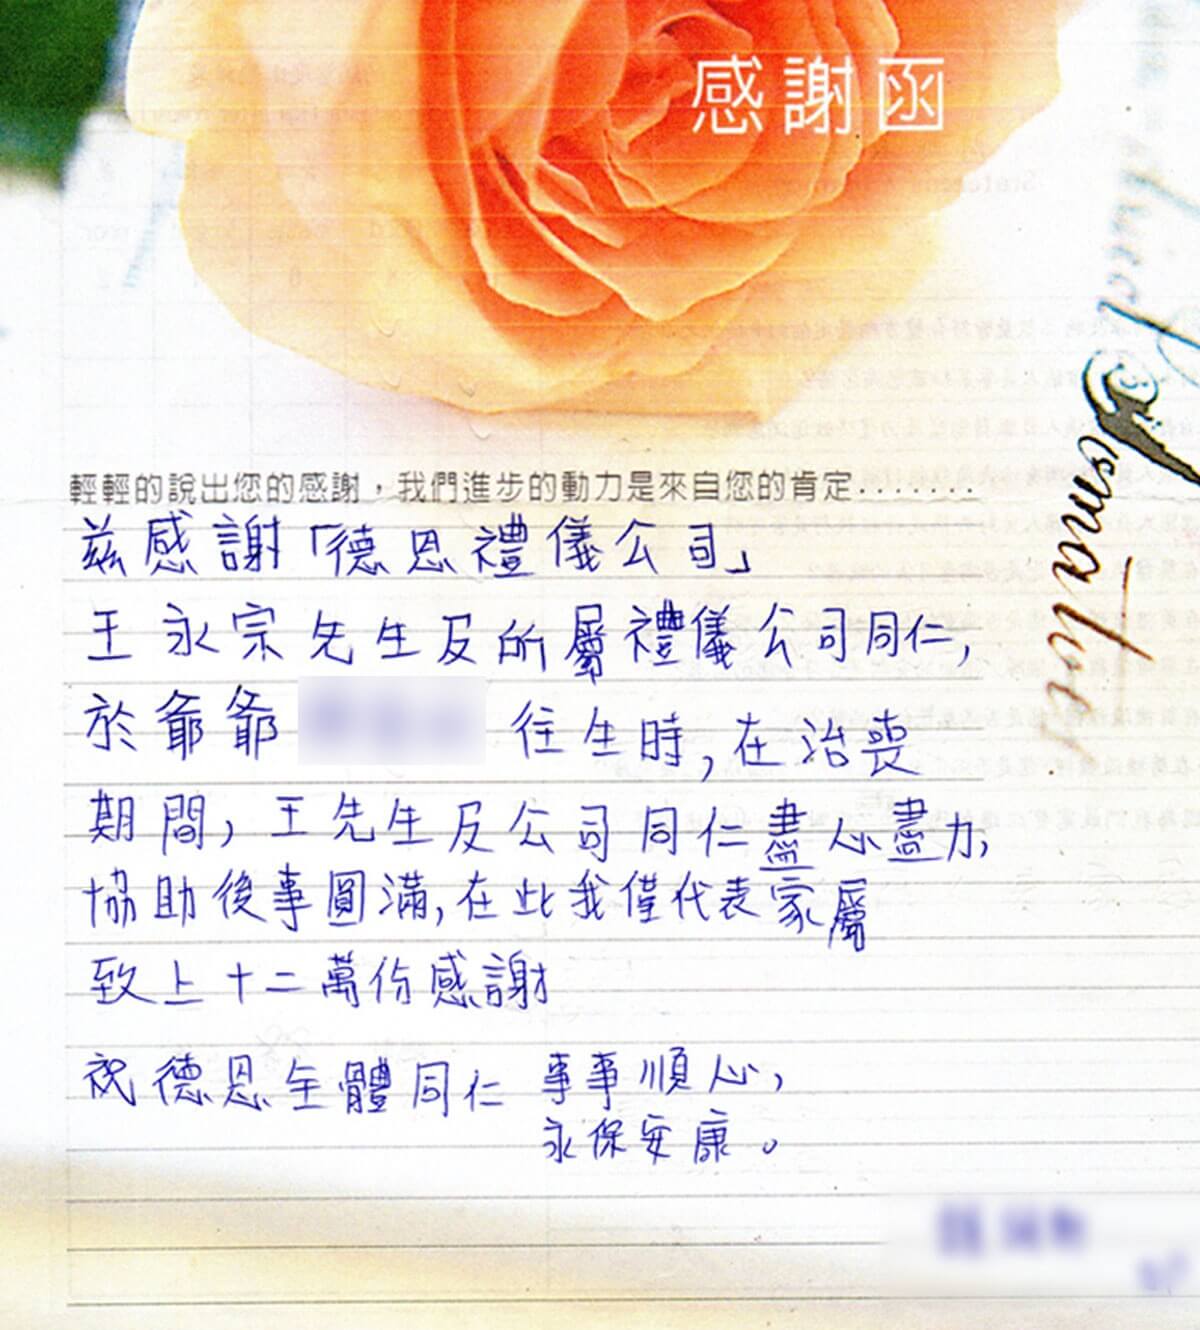 感謝函
輕輕的說出您的感謝，我們進步的動力是來自您的肯定.......
茲感謝「德恩禮儀公司」
王永宗先生及所屬禮儀公司同仁,
於爺爺 往生時,在治喪
期間,王先生及公司同仁盡心盡力,
協助後事圓滿,在此我僅代表家屬
致上十二萬份感謝
祝德恩全體同仁 事事順心,
永保安康。